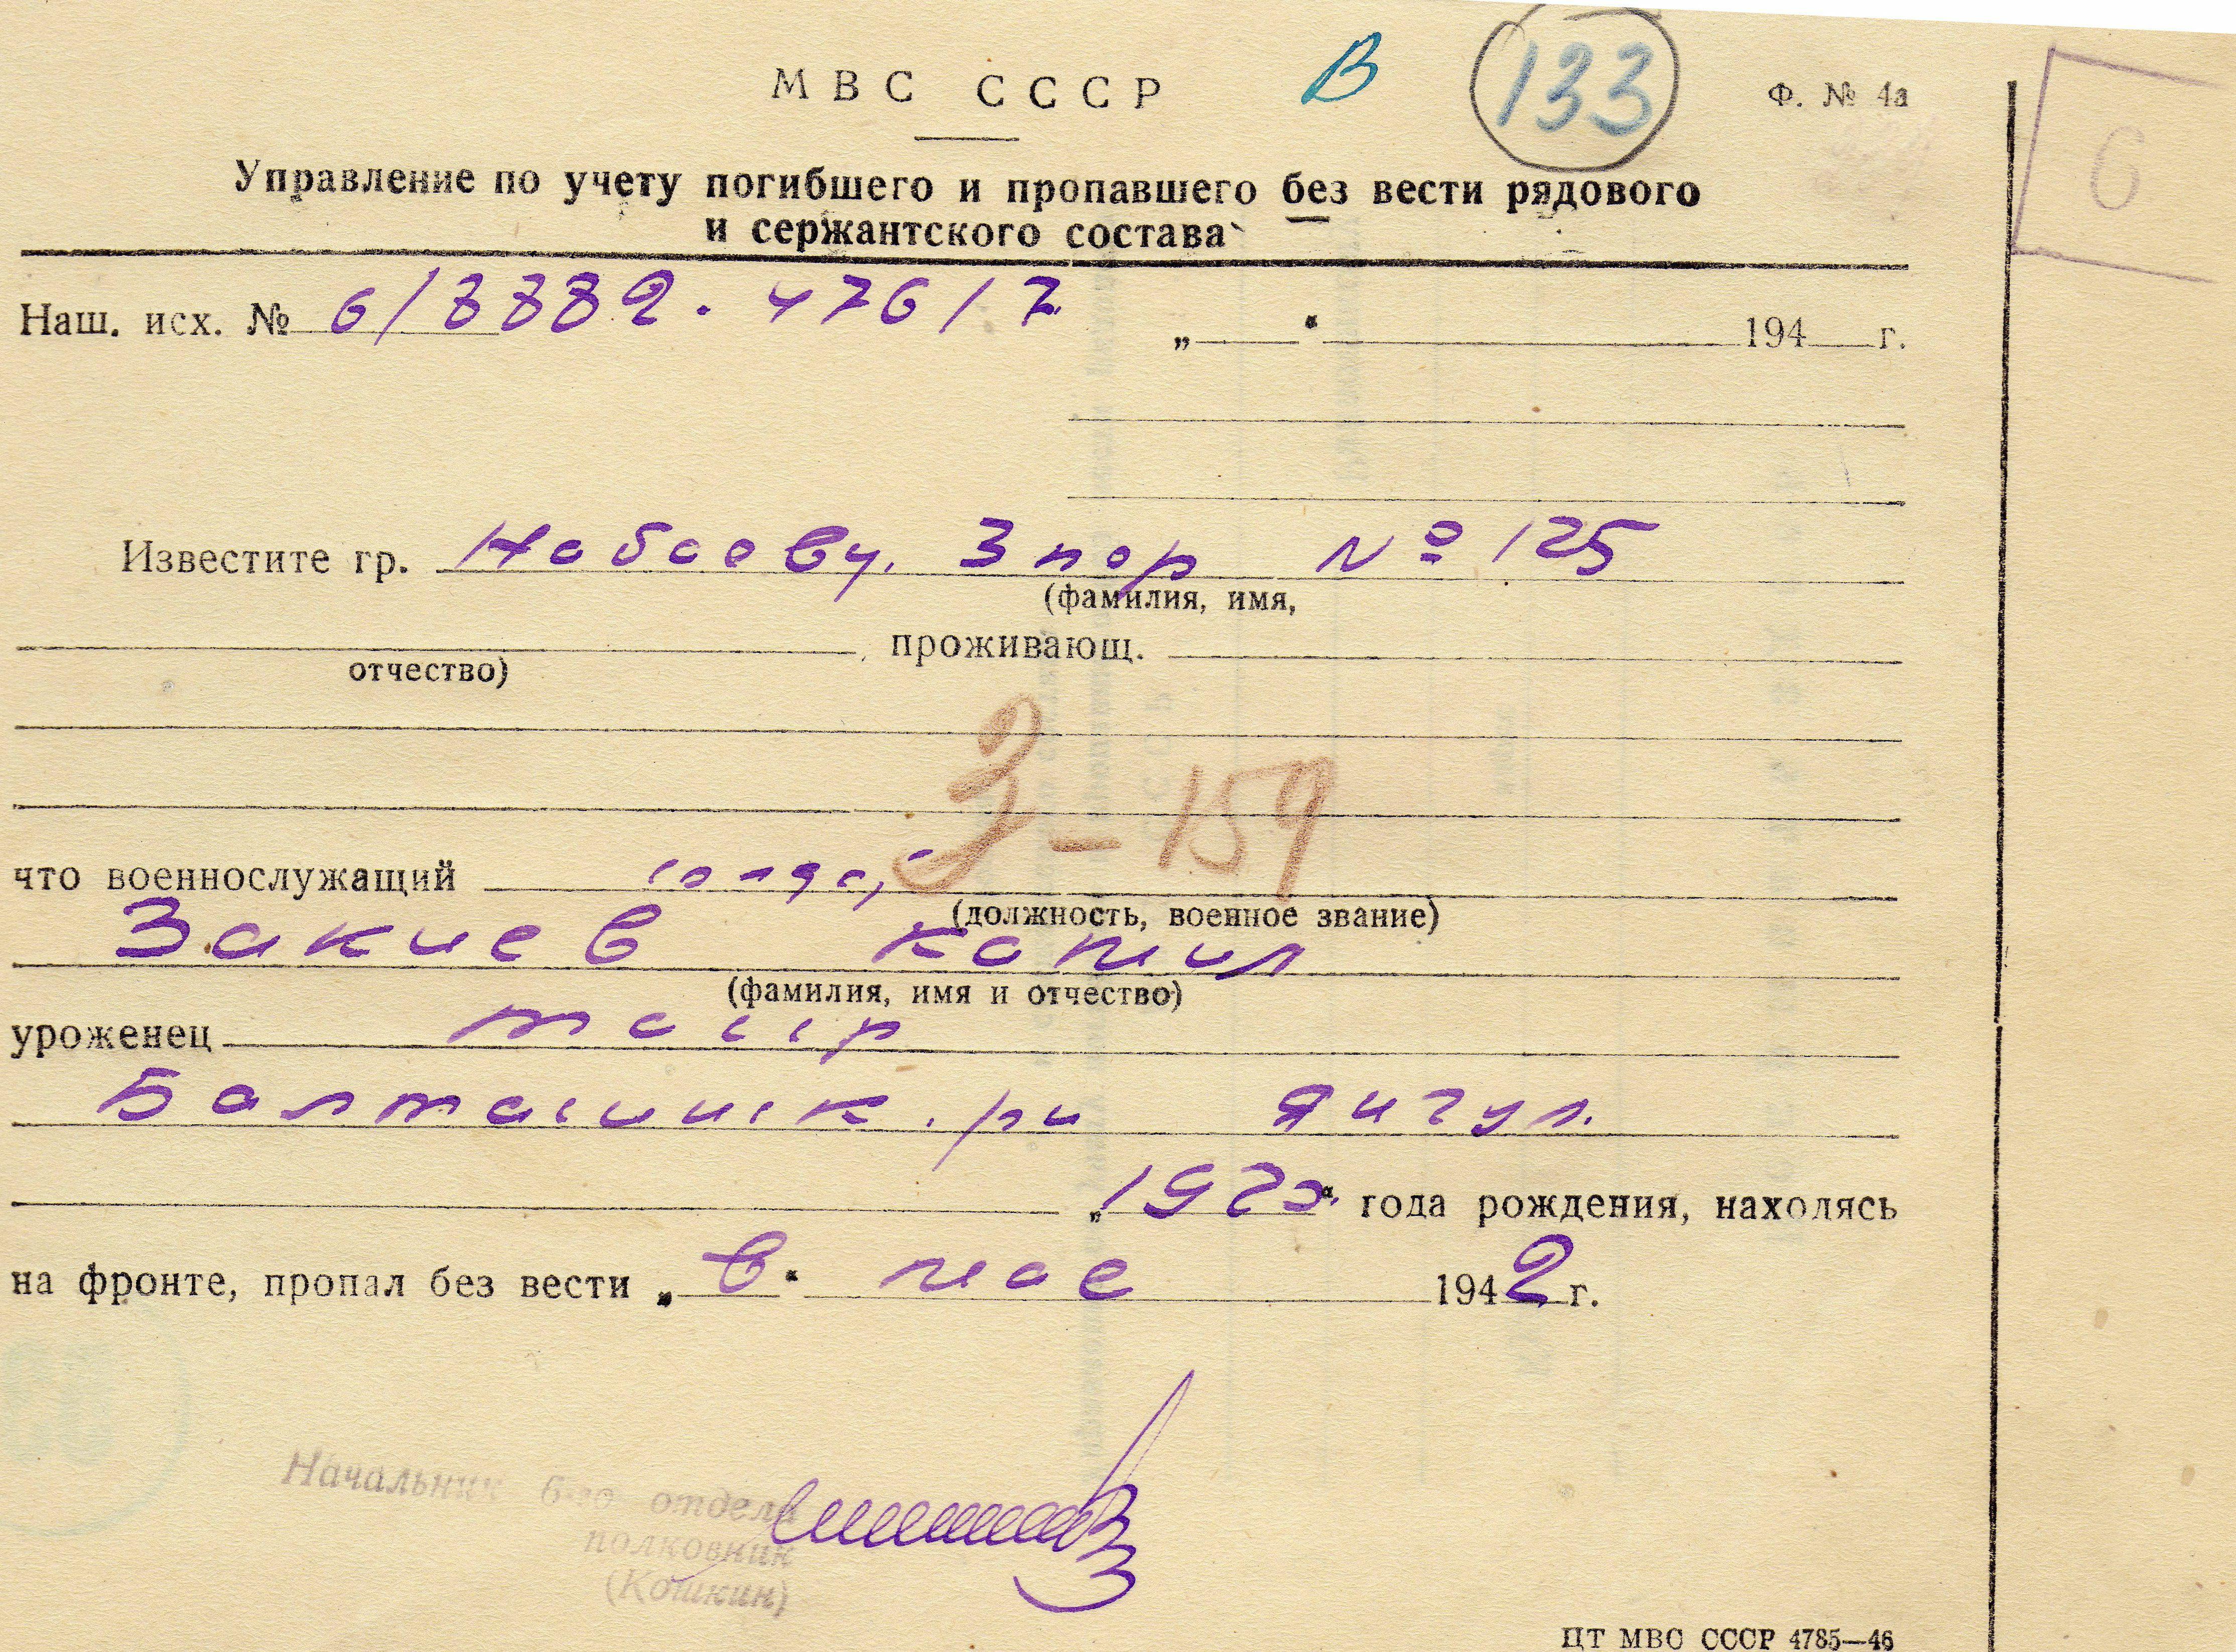 МВС СССР В 133 Ф. № 4а
Управление по учету погибшего и пропавшего без вести рядового
и сержантского состава
Наш. исх. № 6/8882. 476/7 „ “ 194 г.
6
Известите гр. 3 пор № 125
(фамилия, имя,
отчество) , проживающ.
З-159
что военнослужащий солдат
(должность, военное звание)
Закиев Камил
(фамилия, имя и отчество)
уроженец тасср
Балтасинск. рн Янгул.
„ “ года рождения, находясь
на фронте, пропал без вести „ в “ мае 1942 г.
Начальник 6-го отдела
полковник
(Кошкин)
ЦТ МВС СССР 4785—46